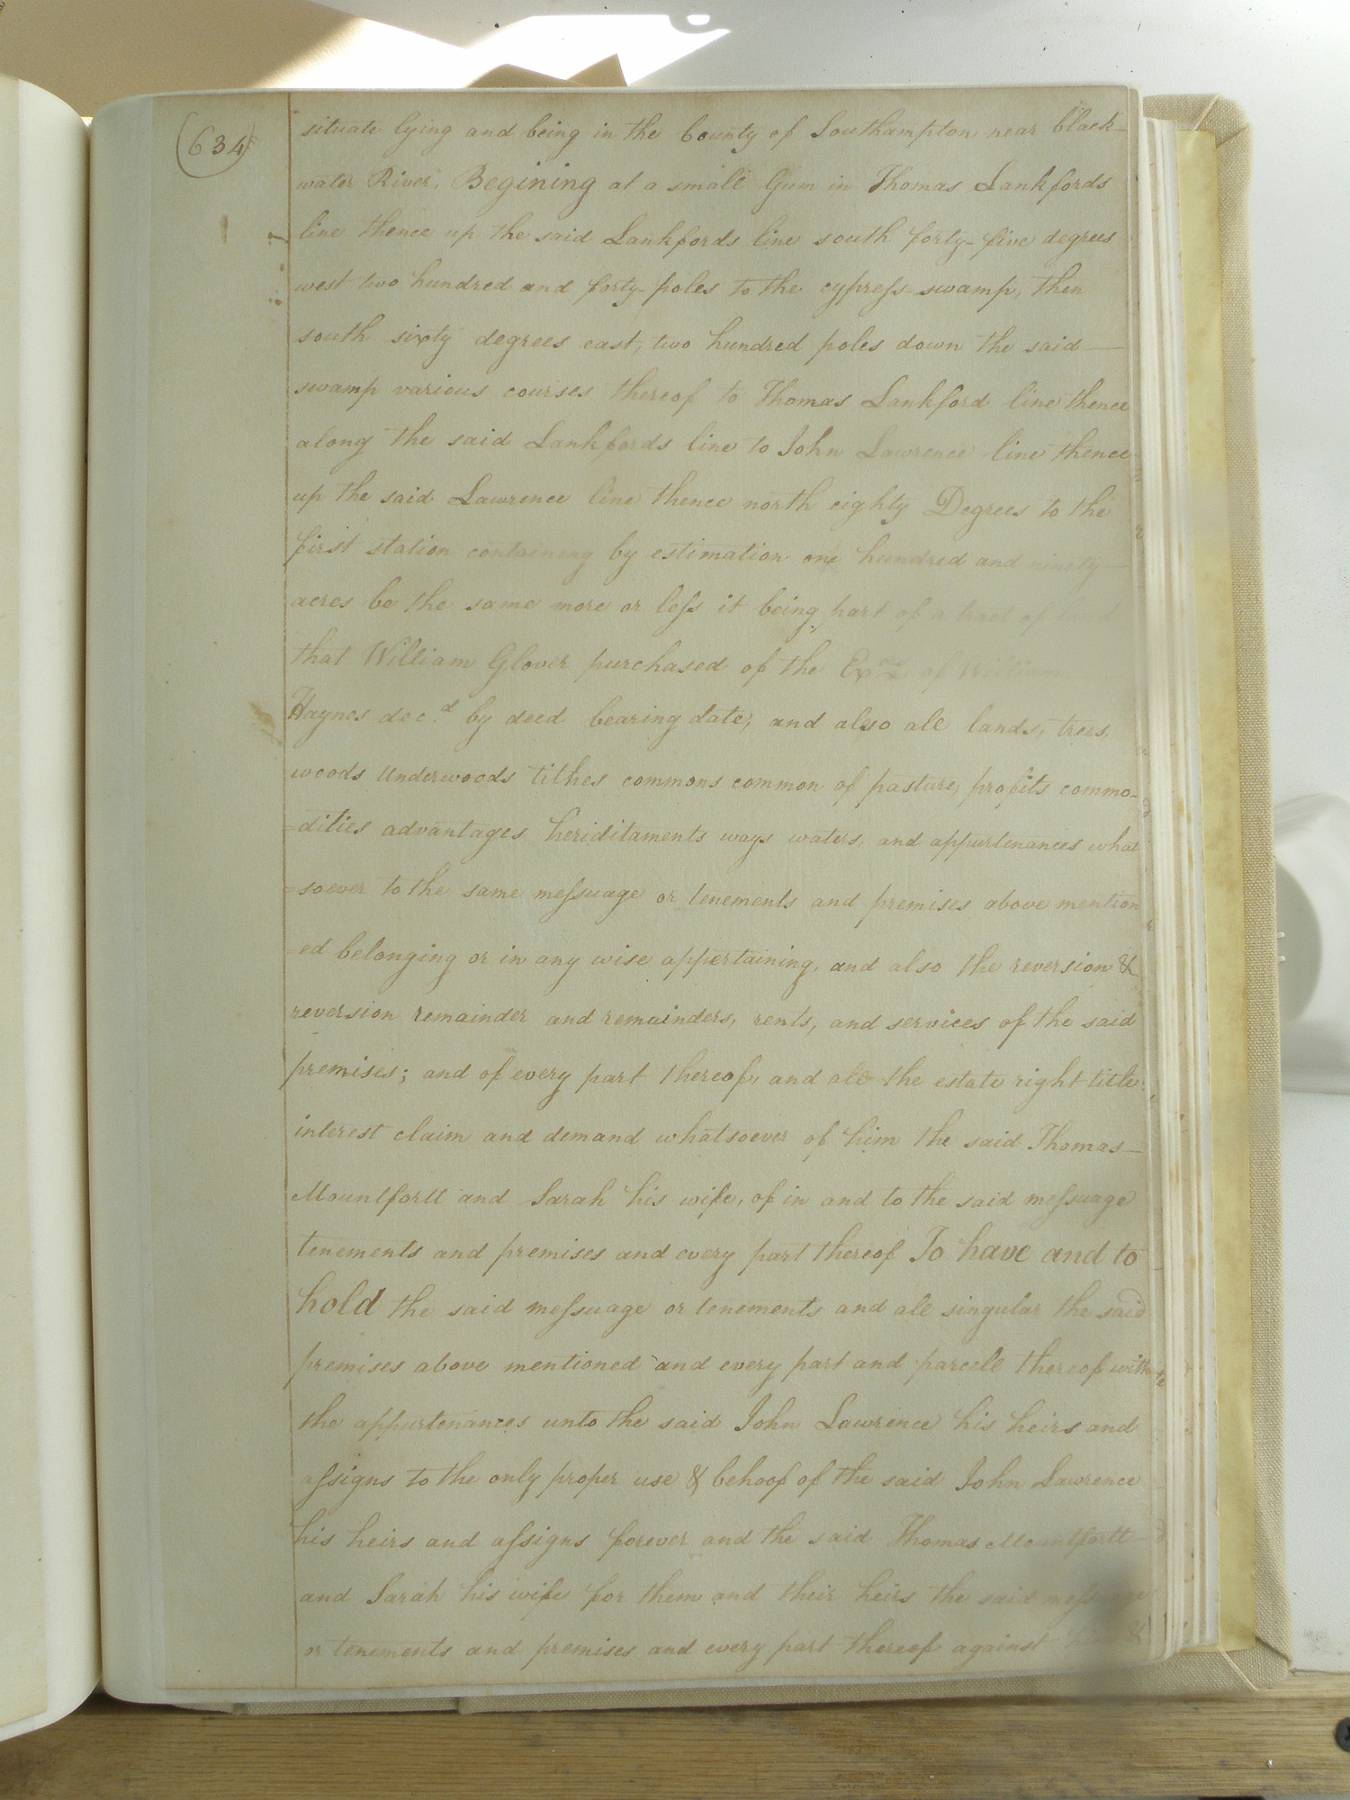 (634)
situate lying and being in the County of Southampton near black-
water River, Begining at a small Gum in Thomas Lankfords
line thence up the said Lankfords line south forty-five degrees
west two hundred and forty-poles to the cypress swamp, then
south sixty degrees east, two hundred poles down the said
swamp various courses thereof to Thomas Lankford line thence
along the said Lankfords line to John Lawrence line thence
up the said Lawrence line thence north eighty Degrees to the
first station containing by estimation one hundred and ninety
acres be the same more or less it being part of a tract of land
that William Glover purchased of the Exrs of William
Haynes decd by deed bearing date, and also all lands, trees,
woods Underwoods tithes commons common of pasture, profits commo-
=dities advantages heriditaments ways waters, and appurtenances what
=soever to the same messuage or tenements and premises above mention
=ed belonging or in any wise appertaining, and also the reversion &
reversion remainder and remainders, rents, and services of the said
premises; and of every part thereof, and all the estate right title
interest claim and demand whatsoever of him the said Thomas
Mountfortt and Sarah his wife, of in and to the said messuage
tenements and premises and every part thereof To have and to
hold the said messuage or tenements and all singular the said
premises above mentioned and every part and parcell thereof with
the appurtenances unto the said John Lawrence his heirs and
assigns to the only proper use & behoof of the said John Lawrence
his heirs and assigns forever and the said Thomas Mountfortt
and Sarah his wife for them and their heirs the said messuage
or tenements and premises and every part thereof against &